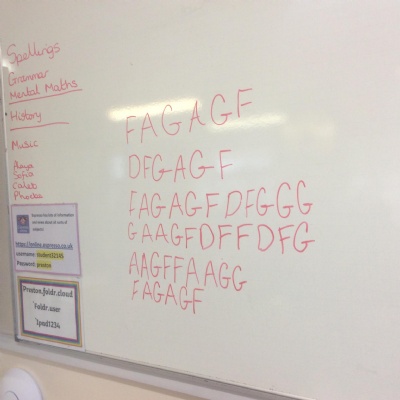 Spellings
Grammar
Mental Maths
History
Music
Sofia
Caleb
Phoebe
https://online.espresso.co.uk
username: student32145
Password: preston
Preston.foldr.cloud
'foldr.user
'Ipad1234
FAGAGF
DFGAGF
FAGAGFDFGGG
GAAGFDFFDFG
AAGFFAAGG
FAGAGF